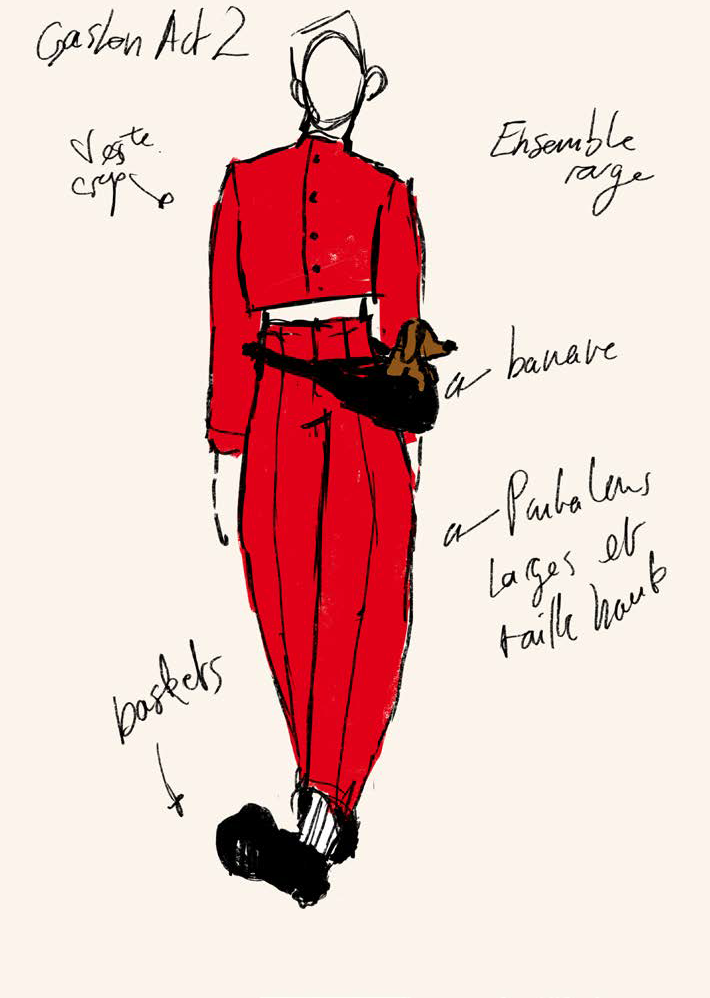 Gaston Act 2
Veste
crop
Ensemble
rouge
banane
Pantalons
larges et
taille haute
baskets